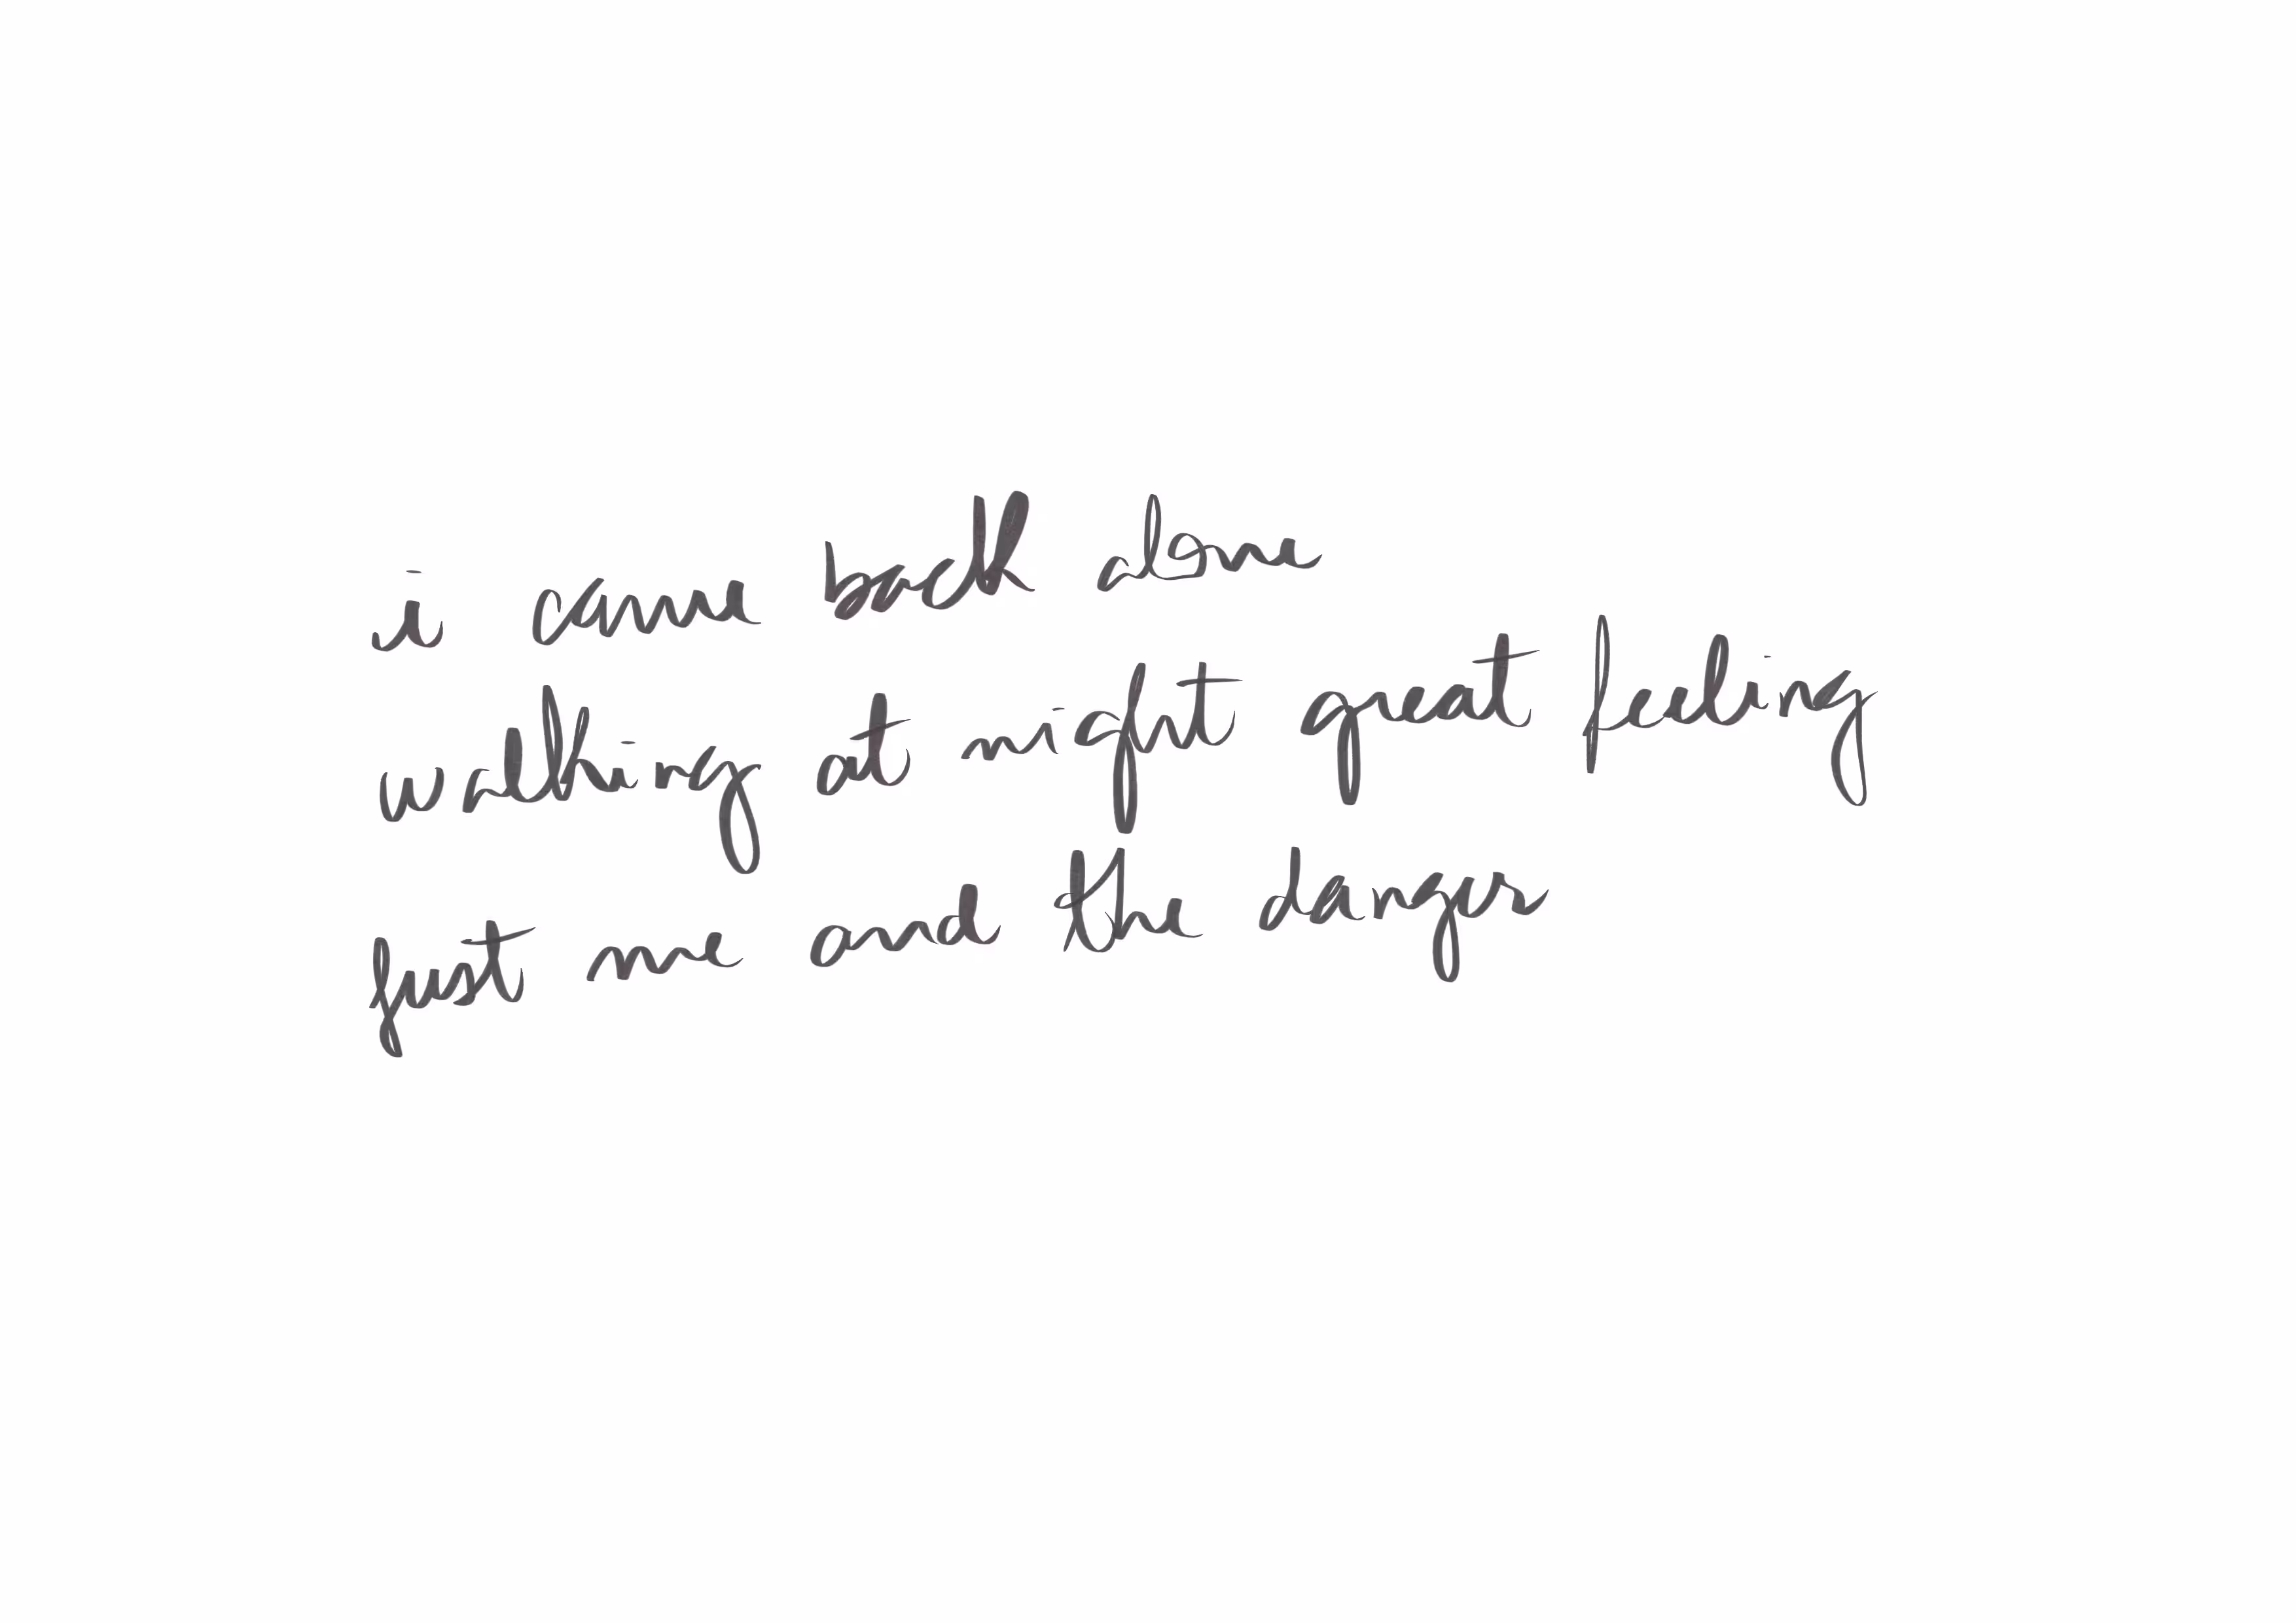 i came back alone
walking at night great feeling
just me and the danger